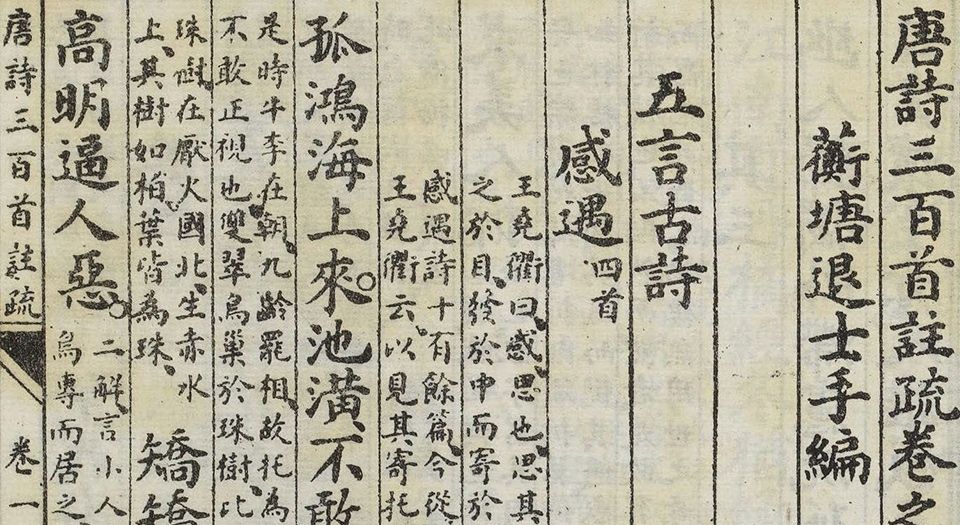 唐詩三百首註疏卷之
蘅塘退士手編
五言古詩
感遇四首
王堯衢曰感、思也、思其
之於目、發於中而寄於
感遇詩十有餘篇、今從
王堯衢云、以見其寄托
孤鴻海上來。池潢不敢
是時牛李在朝、九齡罷相、故托為
不敢正視也雙翠鳥巢於珠樹、比
珠樹在厭火國北、生赤水
上、其樹如柏、葉皆為珠、
矯矯
高明逼人惡。
二解、言小人
鳥專而居之
唐詩三百首註疏 卷一